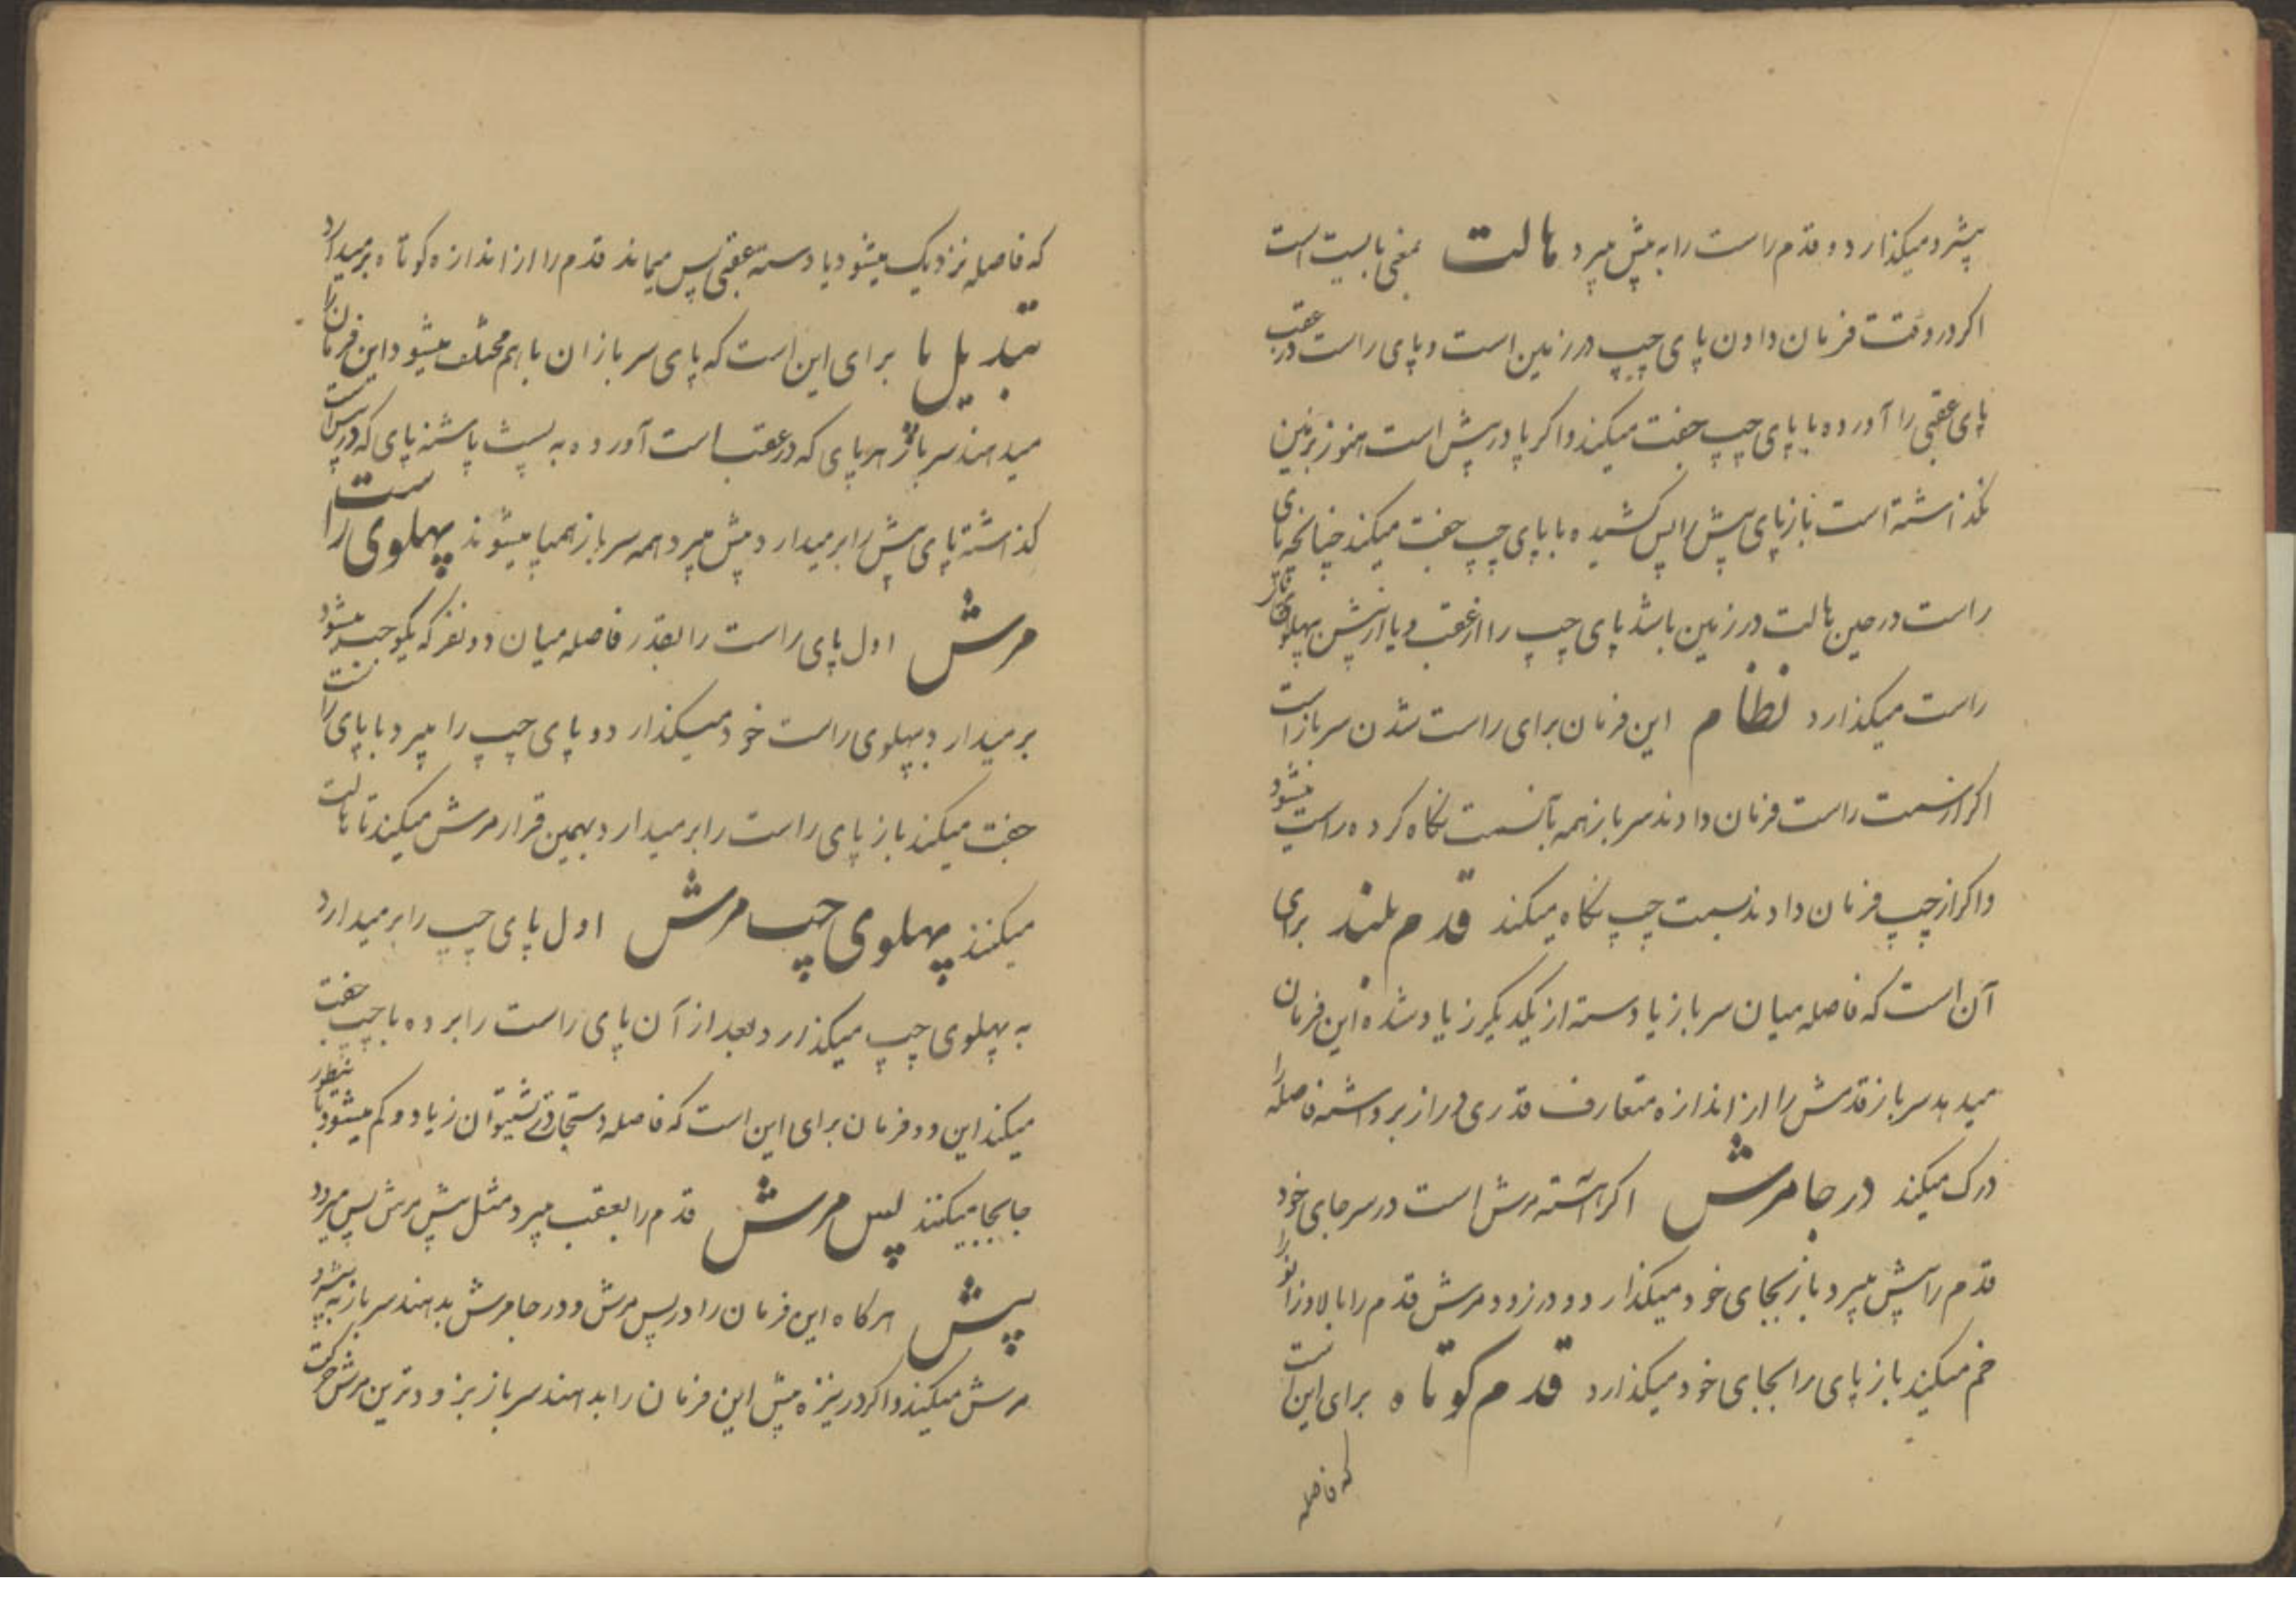 پیشرو میکذارد و قدم راست را به پیش میبرد هالت بمعنی بایست است
اکر در وقت فرمان دادن پای چپ در زمین است و پای راست در عقب
پای عقبی را آورده با پای چپ جفت میکند و اکر پا در پیش است هنوز بر زمین
نکذاشته است باز پای پیش را پس کشیده با پای چپ جفت میکند چنانچه پای
راست در حین هالت در زمین باشد پای چپ را از عقب و یا از پیش پهلوی پای
راست میکذارد نظام این فرمان برای راست شدن سرباز است
اکر از سمت راست فرمان دادند سرباز همه بآنسمت نکاه کرده راست میشود
و اکر از چپ فرمان دادند بسمت چپ نکاه میکند قدم بلند برای
آن است که فاصله میان سرباز یا دسته از یکدیکر زیاد شده این فرمان
میدهد سرباز قدمش را از اندازه متعارف قدری دراز برداشته فاصله را
درک میکند در جا مرش اکر آهسته مرش است در سر جای خود
قدم را پیش میبرد باز بجای خود میکذارد و در زود مرش قدم را بالا و زانو را
خم میکند باز پای را بجای خود میکذارد قدم کوتاه برای این است
که فاصله
که فاصله نزدیک میشود یا دسته عقبی پس میماند قدم را از اندازه کوتاه برمیدارد
تبدیل پا برای این است که پای سربازان با هم مختلف میشود این فرمان را
میدهند سرباز هر پای که در عقب است آورده به پشت پاشنه پای که در پیش است
کذاشته پای پیش را برمیدارد و پیش میبرد همه سرباز همپا میشوند پهلوی راست
مرش اول پای راست را بقدر فاصله میان دو نفر که یکوجب میشود
برمیدارد بپهلوی راست خود میکذارد و پای چپ را میبرد با پای راست
جفت میکند باز پای راست را برمیدارد بهمین قرار مرش میکند تا هالت
میکنند پهلوی چپ مرش اول پای چپ را برمیدارد
به پهلوی چپ میکذارد بعد از آن پای راست را برده با چپ جفت
میکند این دو فرمان برای این است که فاصله دستجات زیاد و کم میشود باینطور
جابجا میکنند پس مرش قدم را بعقب میبرد مثل پیش مرش پس میرود
پیش هرکاه این فرمان را در پس مرش و در جا مرش بدهند سرباز به پیشرو
مرش میکند و اکر در نیزه پیش این فرمان را بدهند سرباز بزودترین مرش حرکت